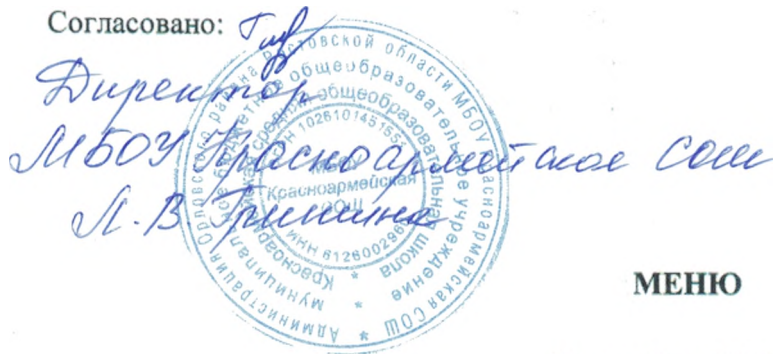 Согласовано:
Директор
МБОУ Красноармейское СОШ
Л. В.
Администрация Орловского района Ростовской области МБОУ Красноармейская СОШ
муниципальное бюджетное общеобразовательное учреждение
Красноармейская средняя общеобразовательная школа
МБОУ
Красноармейская
СОШ
МЕНЮ